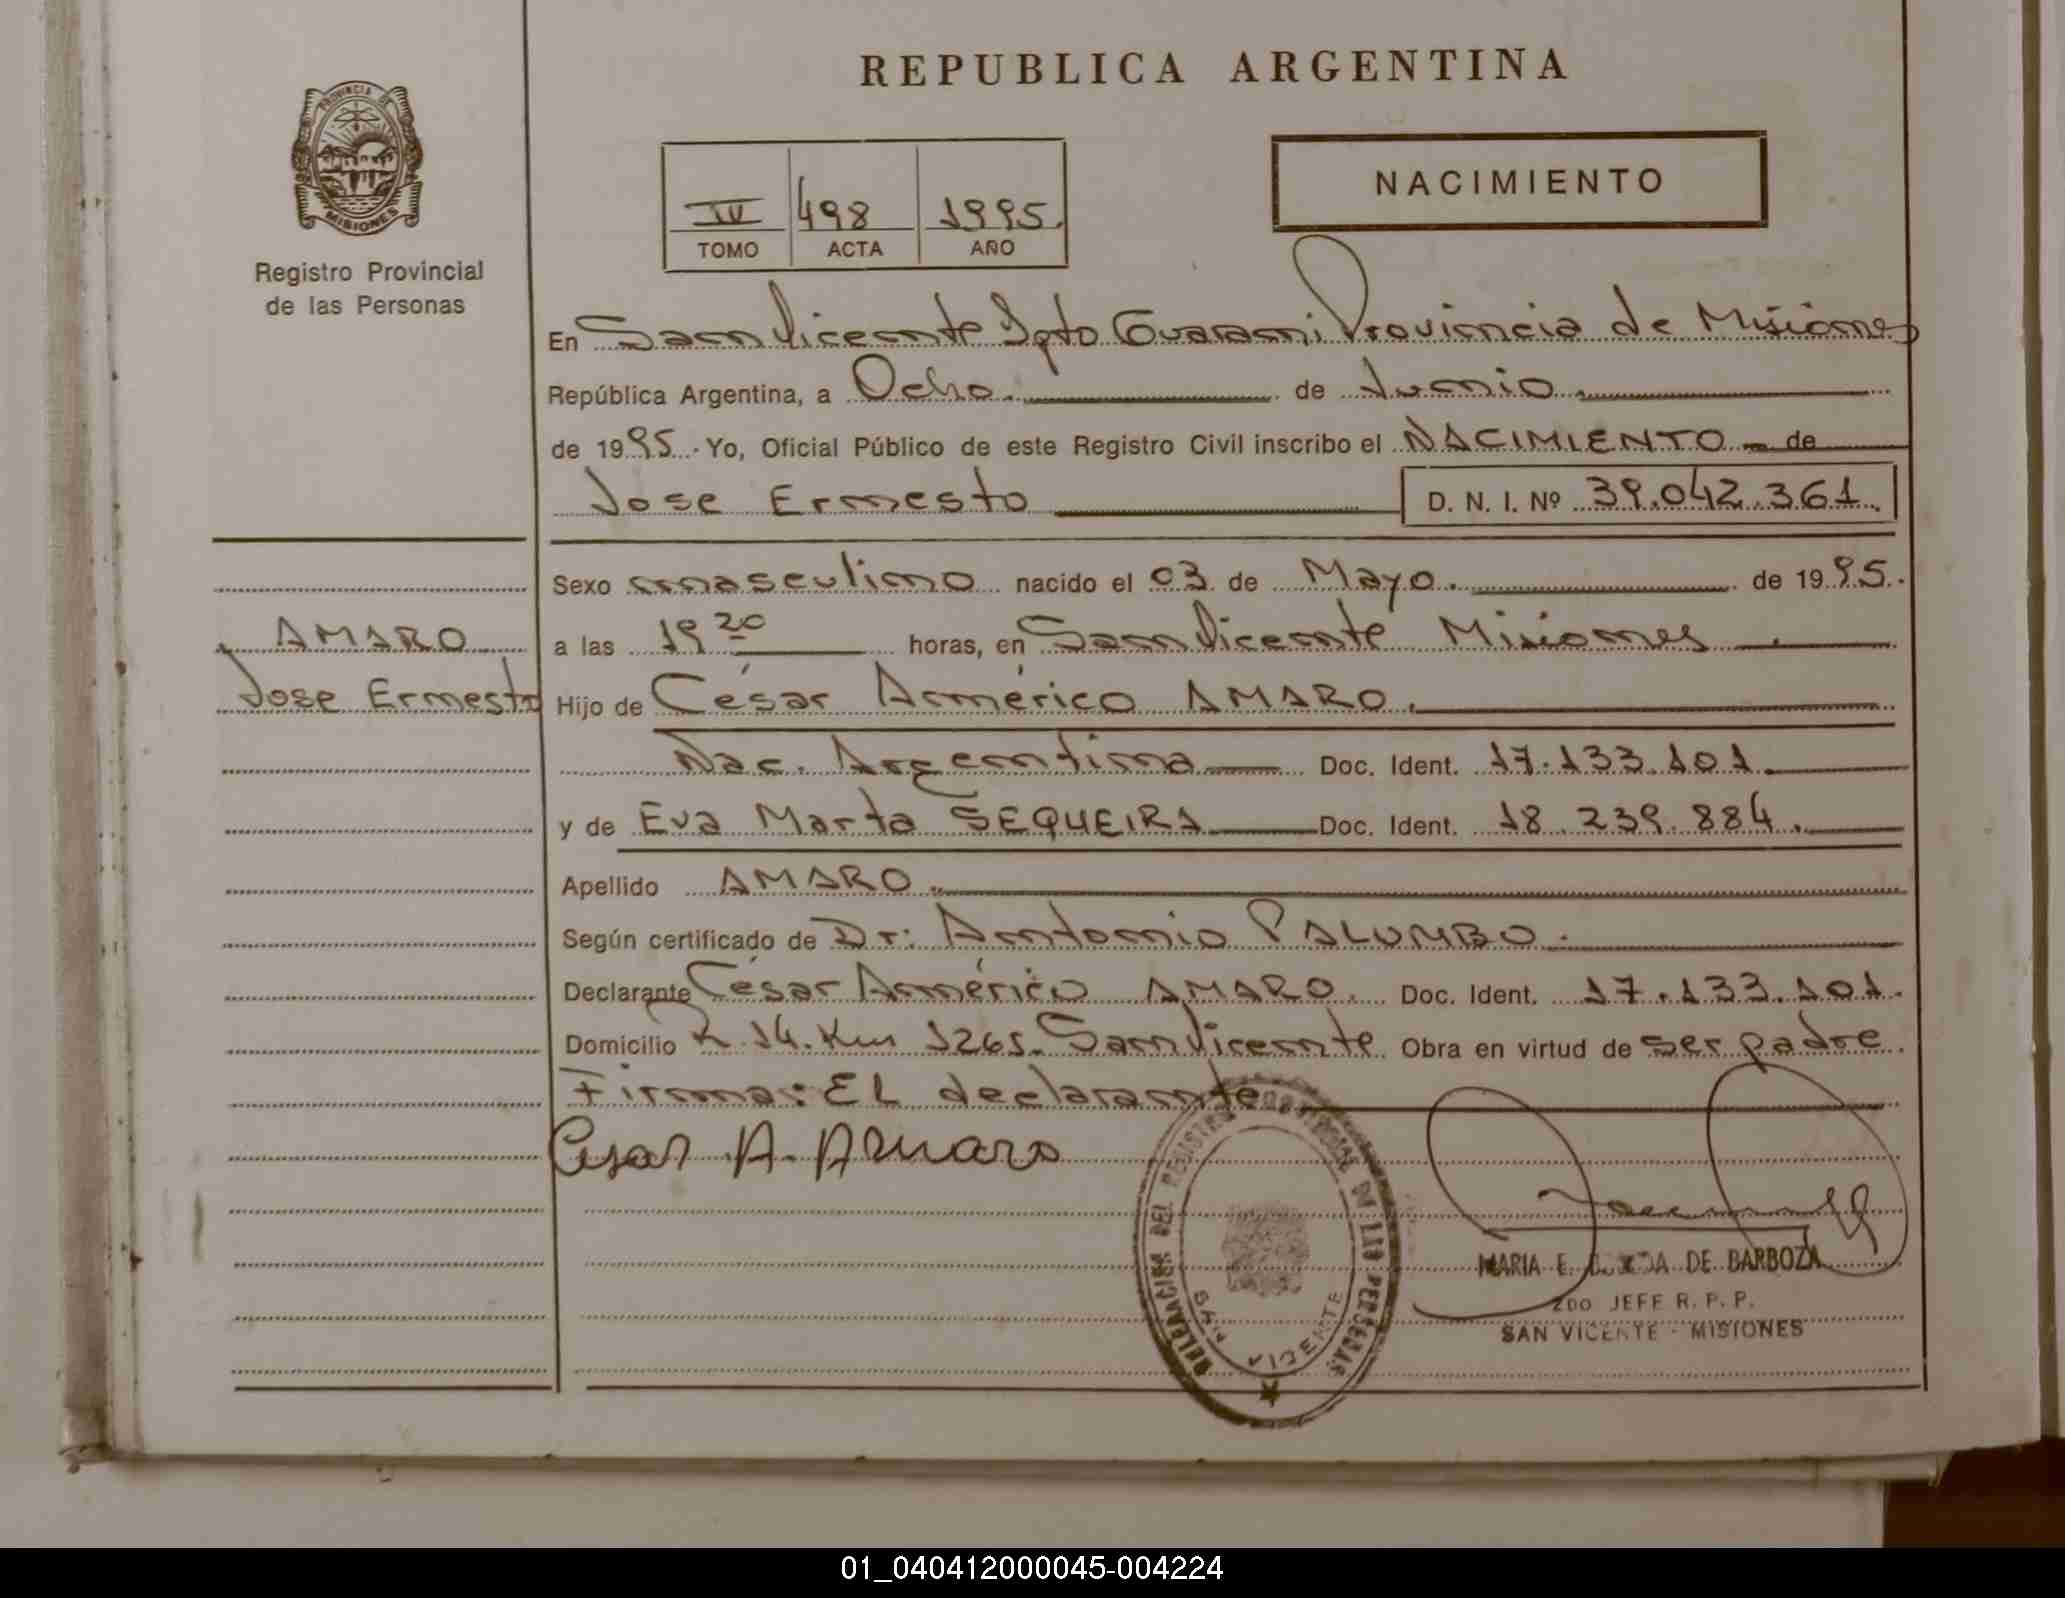 REPUBLICA ARGENTINA
PROVINCIA DE
MISIONES
Registro Provincial
de las Personas
IV 498 1995.
TOMO ACTA AÑO
NACIMIENTO
En San Vicente Dpto Guarani Provincia de Misiones
República Argentina, a Ocho. de Junio
de 1995. Yo, Oficial Público de este Registro Civil inscribo el NACIMIENTO de
Jose Ernesto D. N. I. Nº 39.042.361.
Sexo masculino nacido el 03 de Mayo. de 1995.
AMARO
Jose Ernesto
a las 19 20 horas, en San Vicente Misiones
Hijo de César Américo AMARO.
Nac. Argentina Doc. Ident. 17.133.101.
y de Eva Marta SEQUEIRA Doc. Ident. 18.239.884.
Apellido AMARO
Según certificado de Dr: Antonio PALUMBO.
Declarante César Américo AMARO. Doc. Ident. 17.133.101.
Domicilio R.14.Km 1265. San Vicente Obra en virtud de ser padre
Firma: EL declarante
Cesar A. Amaro
DELEGACION DEL REGISTRO PROVINCIAL DE LAS PERSONAS
SAN VICENTE
MARIA E. DE BARBOZA
2DO JEFE R. P. P.
SAN VICENTE - MISIONES
01_040412000045-004224